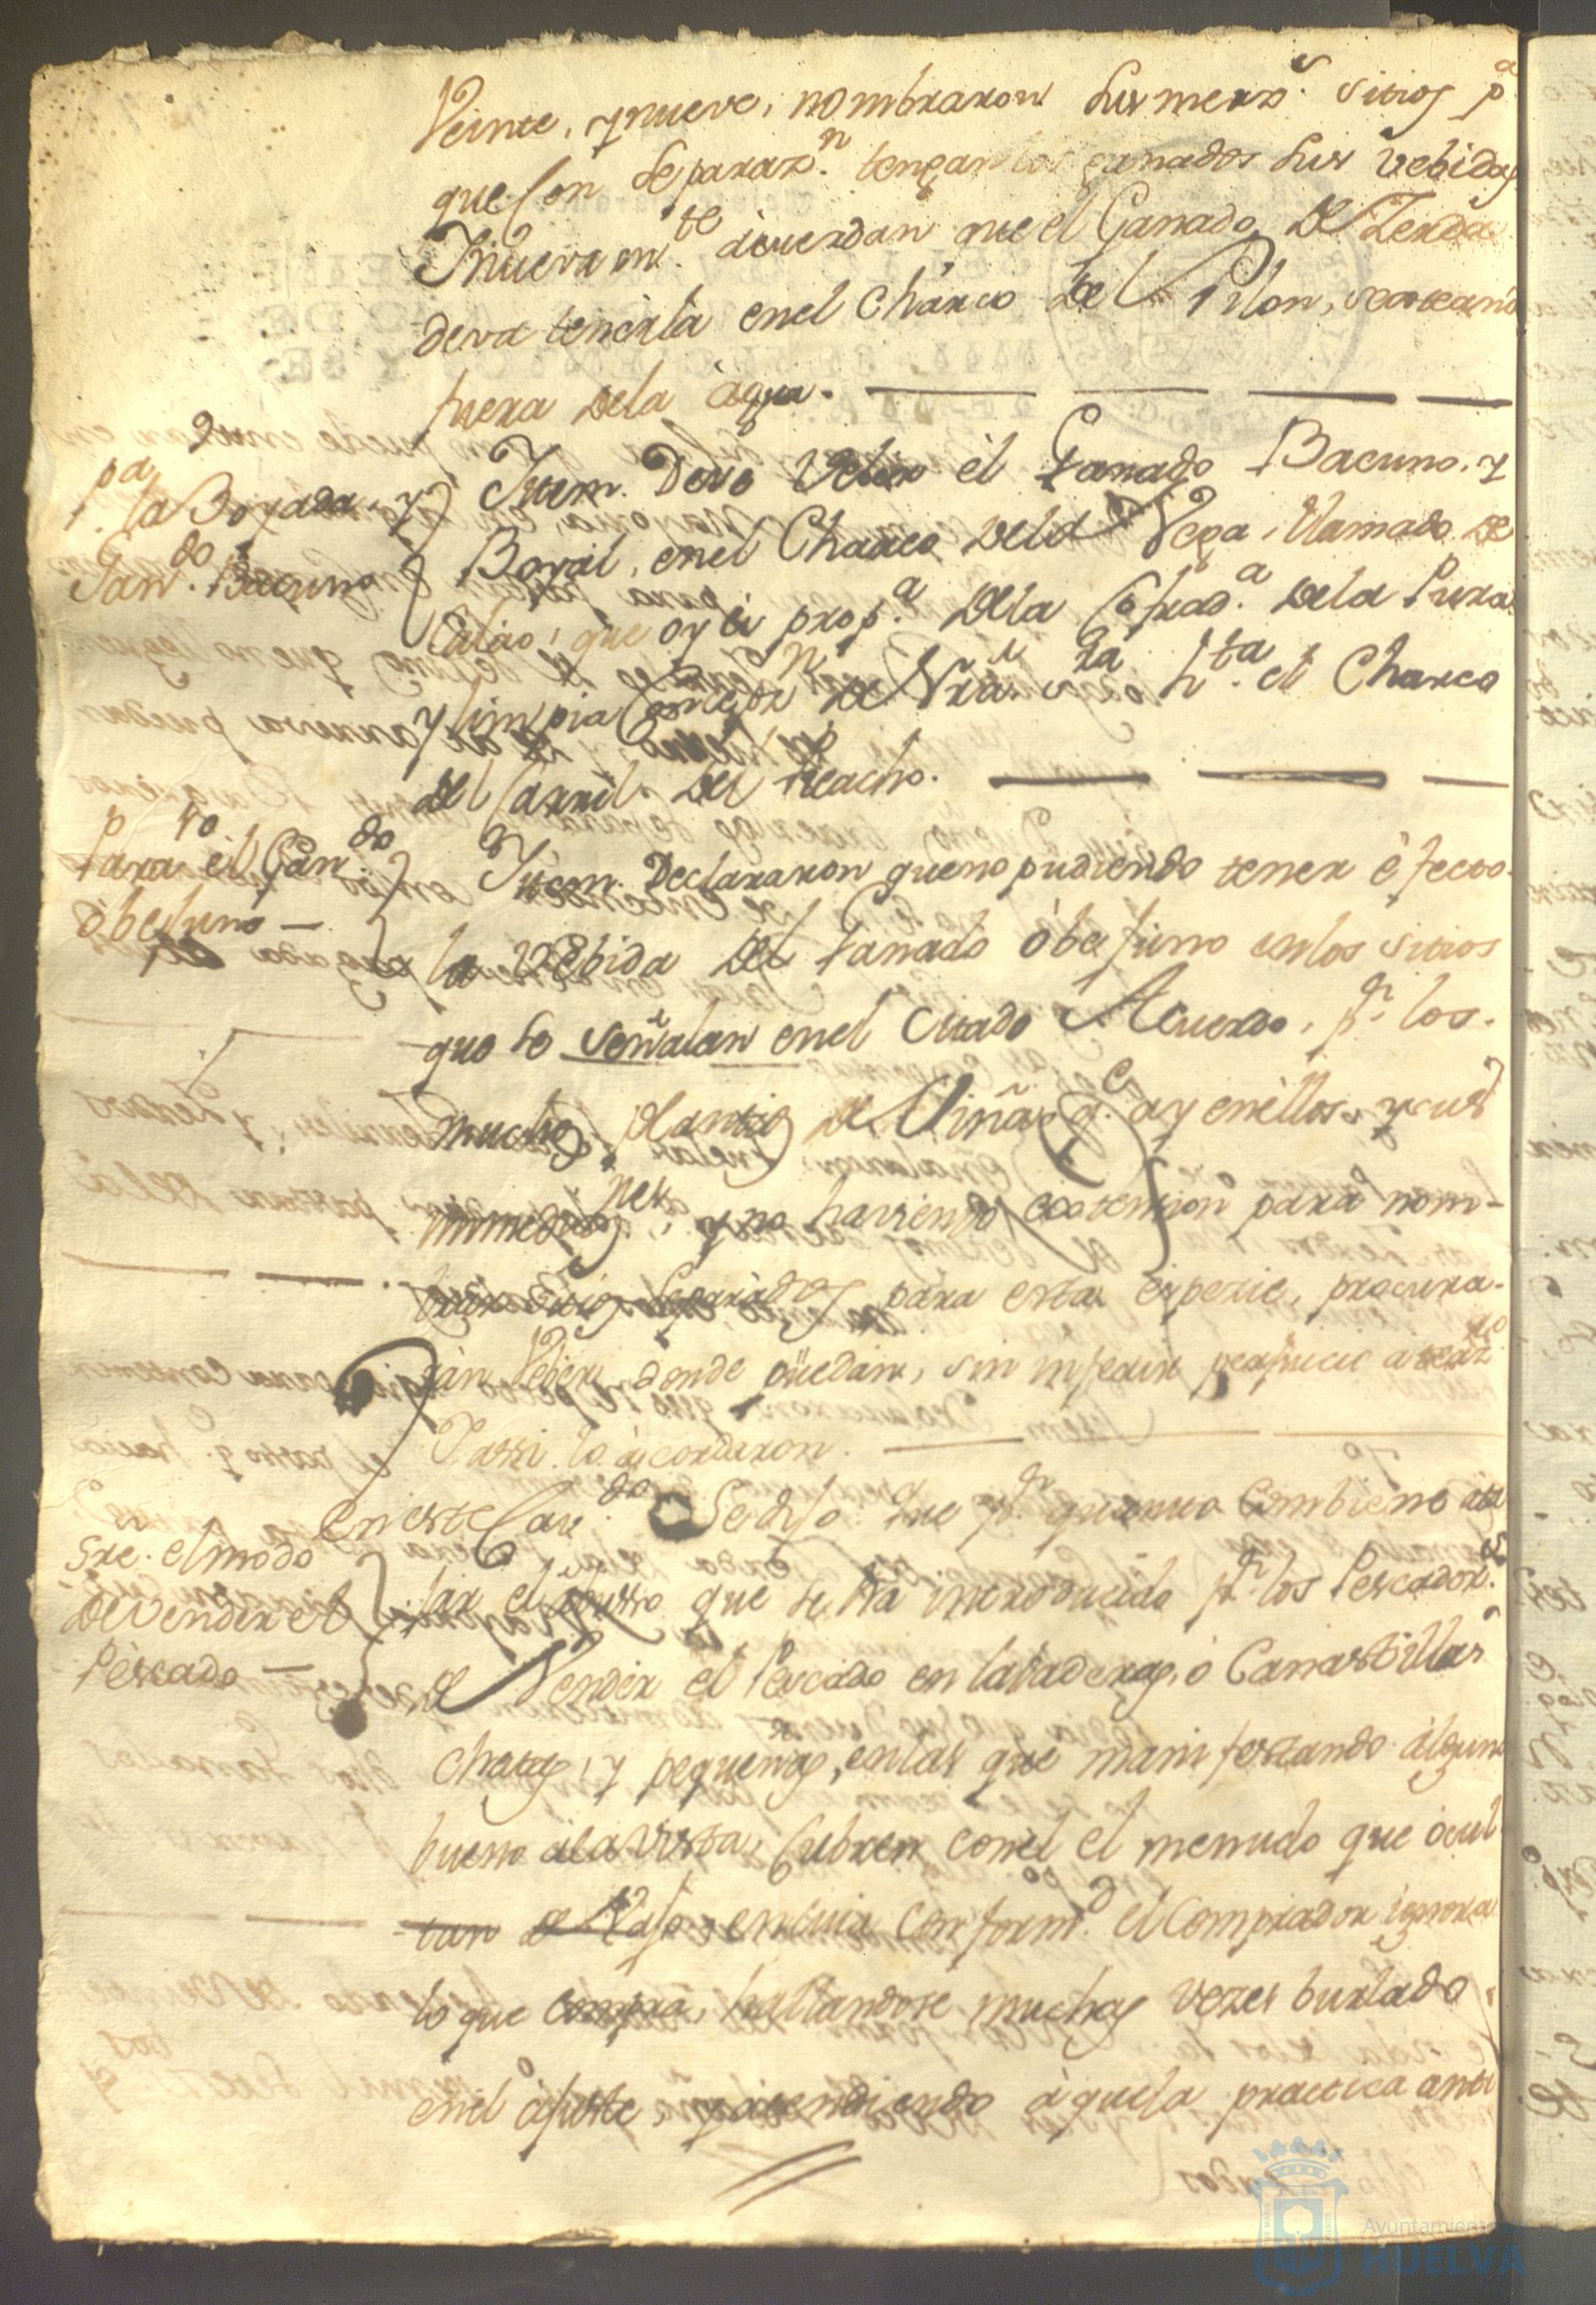 Veinte, y nueve, nombraron sus merz.s sitios p.a
que con separaz.n tengan los ganados sus vebidas
Y nuevam.te acuerdan que el Ganado de Zerda
deva tenerla en el Charco del Pilon, sesteando
fuera dela agua.
2.
p.a la Boyada, y
Gan.do Bacuno
Ytem. Deve beber el Ganado Bacuno, y
Boyal, en el Charco dela Vega, llamado de
que oy es prop.a dela Cofrad.a dela Pura
y limpia Concepz.n de Nra. Sra. h.ta el Charco
del Carril del
Para el Gan.do
obejuno
Ytem. Declararon que no pudiendo tener efecto
la vebida del Ganado obejuno en los sitios
que se señalan en el citado Acuerdo, p.r los
muchos plantios de Viñas q.e ay en ellos, y sus
y no haviendo extension para nom-
brar sitios separados para esta espezie, procura-
rán beber donde puedan, sin inferir perjuicio a terz.ro
Y assi lo acordaron.
Sre. el modo
de vender el
Pescado
En este Cav.do Se dijo que p.r quanto combiene
tar el que se ha introducido p.r los Pescador.s
de Vender el Pescado en ó Canastillas
chatas, y pequeñas, en las que manifestando alguno
bueno ala vista, cubren con el el menudo que ocul
tan de bajo, en cuia conform.d el Comprador ignora
lo que compra, hallandose muchas vezes burlado
en el ajuste, y atendiendo á que la practica anti
Ayuntamiento
HUELVA